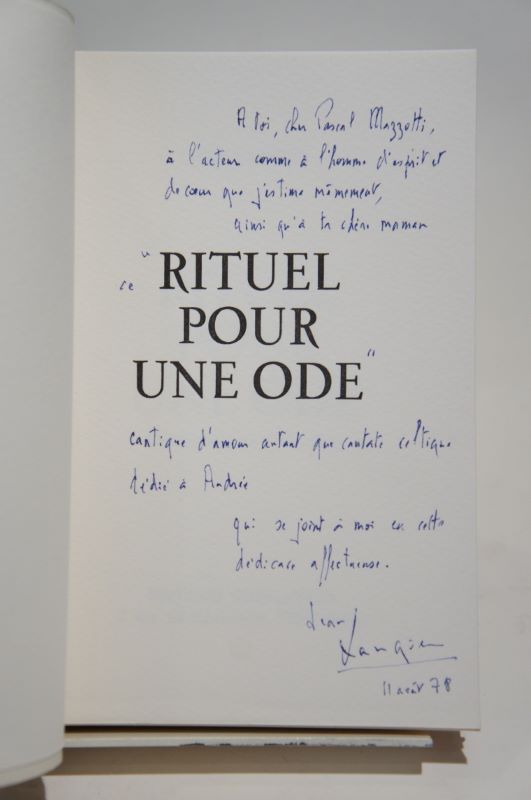 A toi, cher Pascal Mazzotti,
à l'acteur comme à l'homme d'esprit et
de cœur que j'estime mêmement,
ainsi qu'à ta chère maman
ce "RITUEL
POUR
UNE ODE"
cantique d'amour autant que cantate celtique
dédié à Andrée
qui se joint à moi en cette
dédicace affectueuse.
Jean
11 août 78